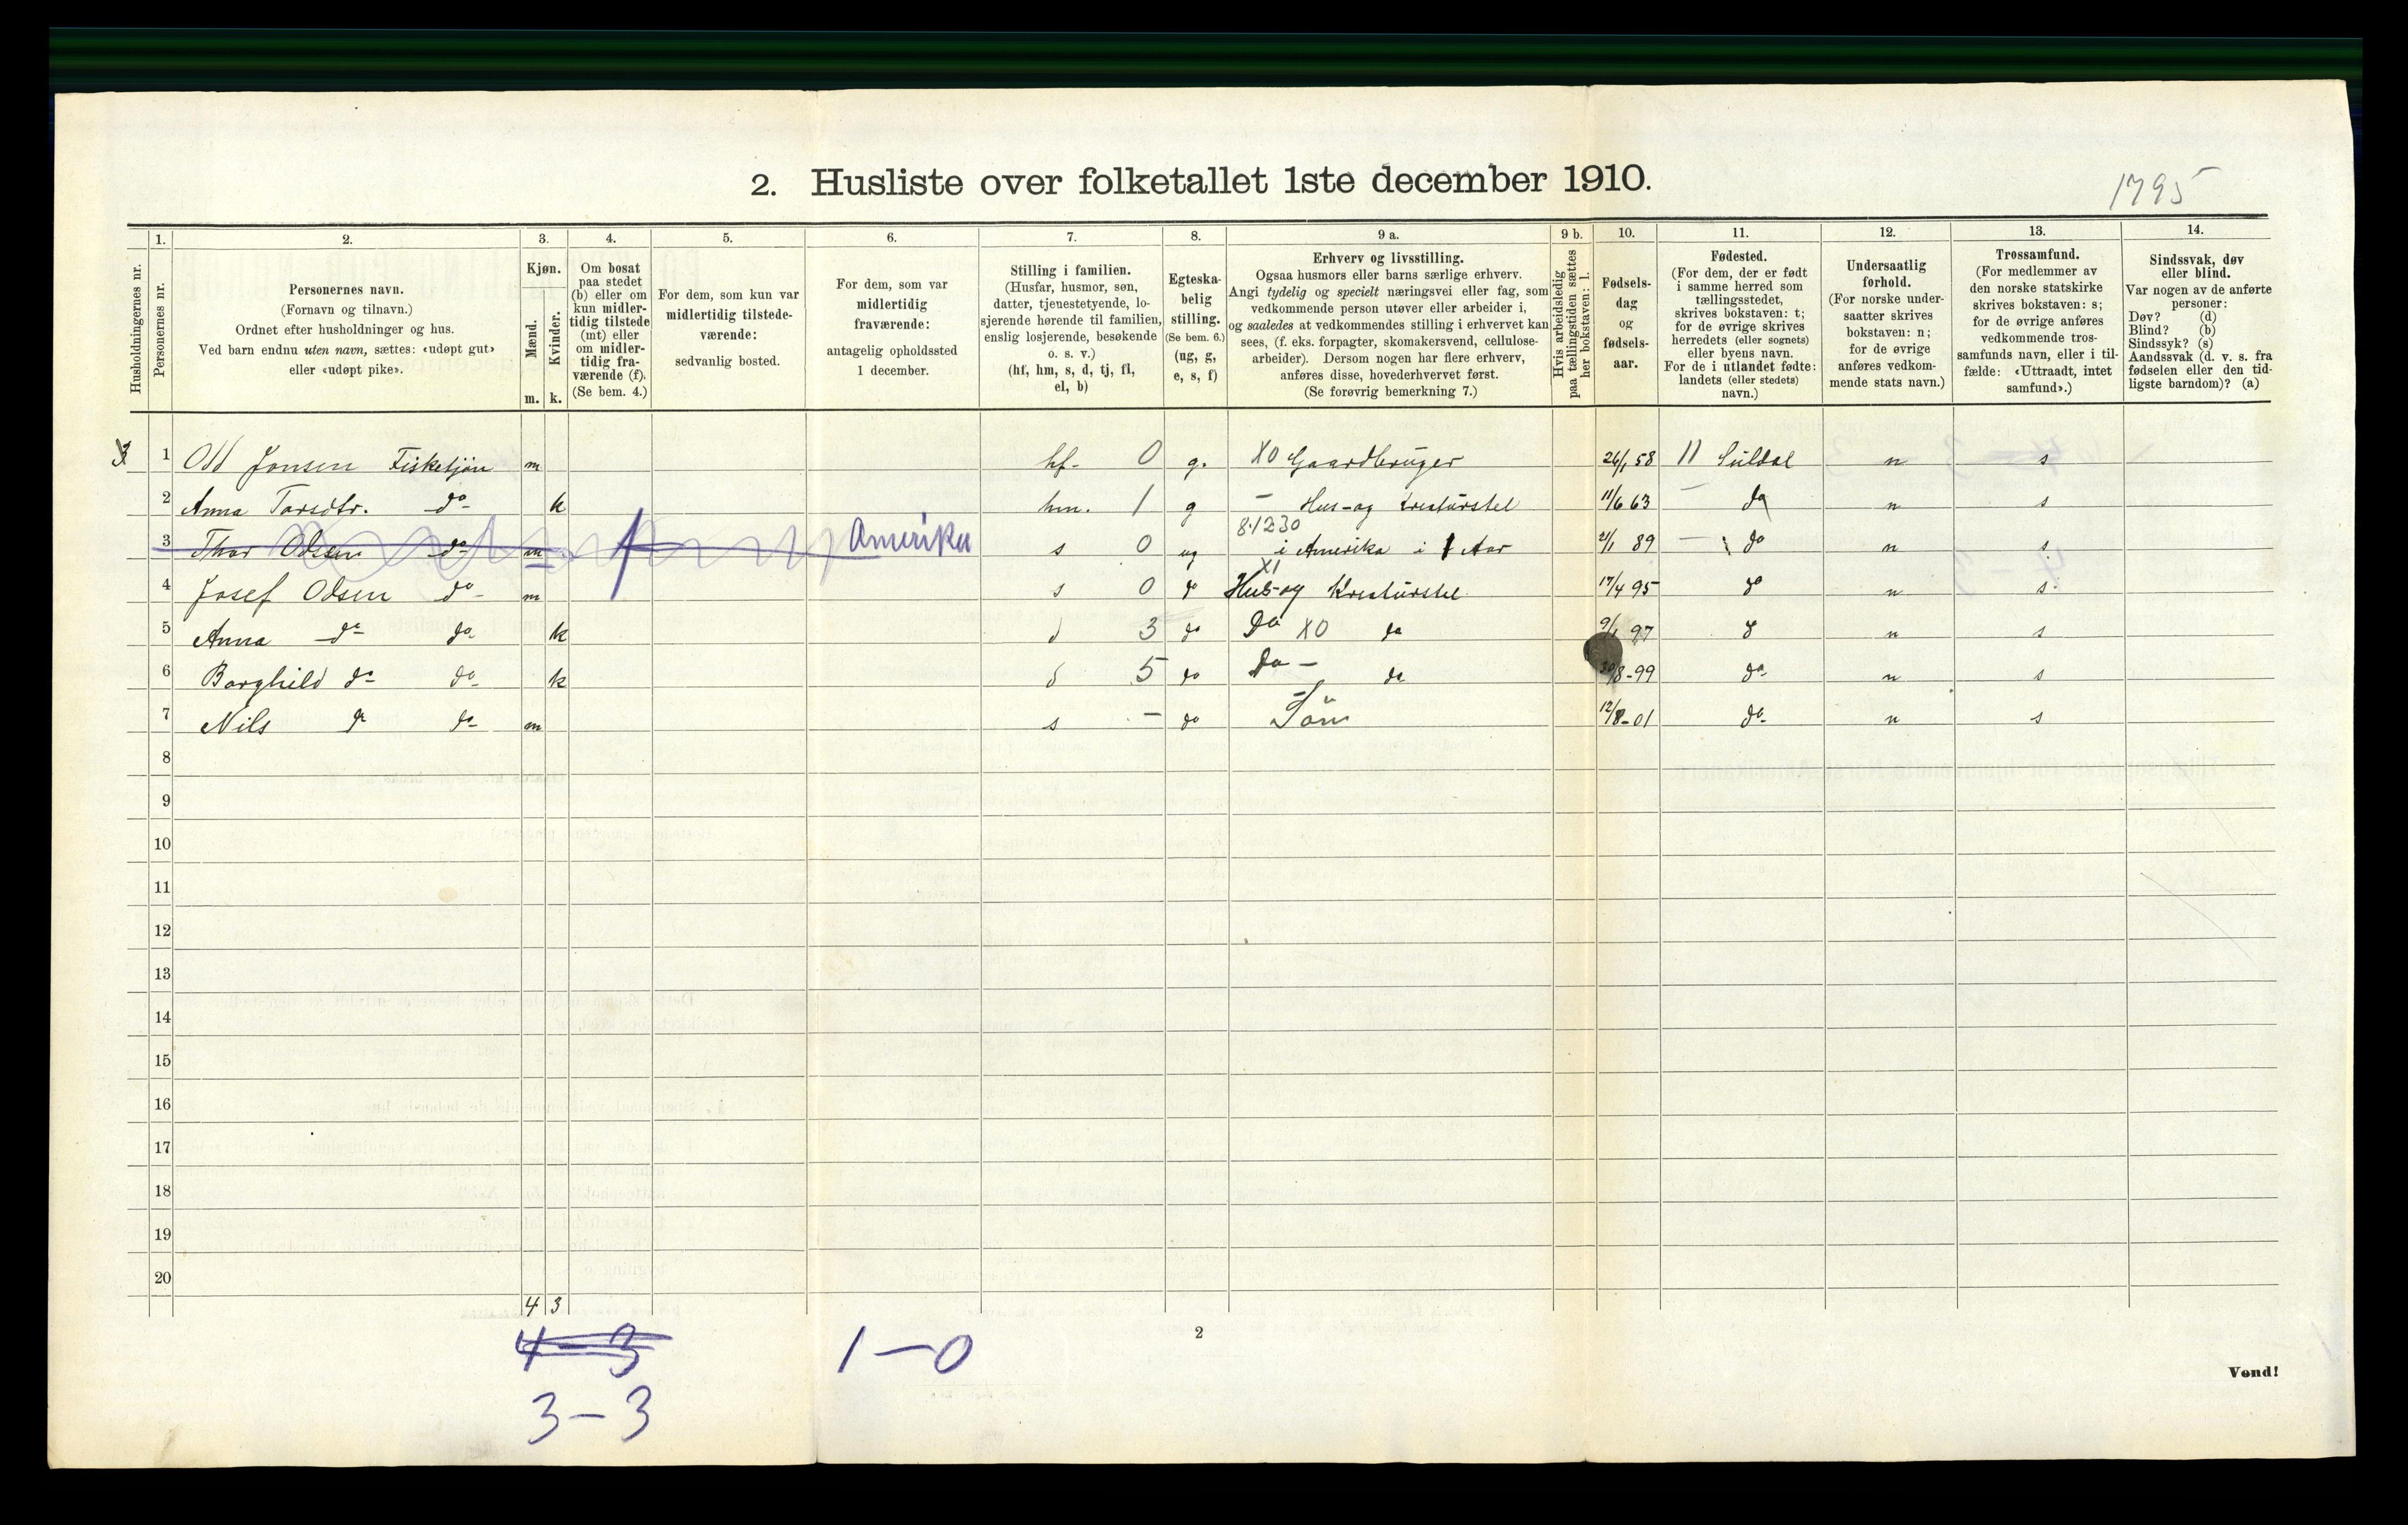 2. Husliste over folketallet 1ste december 1910.
1795
Husholdningernes nr.
1.
Personernes nr.
2.
Personernes navn.
(Fornavn og tilnavn.)
Ordnet efter husholdninger og hus.
Ved barn endnu uten navn, sættes: «udøpt gut»
eller «udøpt pike».
3.
Kjøn.
Mænd.
Kvinder.
m. k.
4.
Om bosat
paa stedet
(b) eller om
kun midler-
tidig tilstede
(mt) eller
om midler-
tidig fra-
værende (f).
(Se bem. 4.)
5.
For dem, som kun var
midlertidig tilstede-
værende:
sedvanlig bosted.
6.
For dem, som var
midlertidig
fraværende:
antagelig opholdssted
1 december.
7.
Stilling i familien.
(Husfar, husmor, søn,
datter, tjenestetyende, lo-
sjerende hørende til familien,
enslig losjerende, besøkende
o. s. v.)
(hf, hm, s, d, tj, fl,
el, b)
8.
Egteska-
belig
stilling.
(Se bem. 6.)
(ug, g,
e, s, f)
9 a.
Erhverv og livsstilling.
Ogsaa husmors eller barns særlige erhverv.
Angi tydelig og specielt næringsvei eller fag, som
vedkommende person utøver eller arbeider i,
og saaledes at vedkommendes stilling i erhvervet kan
sees, (f. eks. forpagter, skomakersvend, cellulose-
arbeider). Dersom nogen har flere erhverv,
anføres disse, hovederhvervet først.
(Se forøvrig bemerkning 7.)
9 b.
Hvis arbeidsledig
paa tællingstiden sættes
her bokstaven: l.
10.
Fødsels-
dag
og
fødsels-
aar.
11.
Fødested.
(For dem, der er født
i samme herred som
tællingsstedet,
skrives bokstaven: t;
for de øvrige skrives
herredets (eller sognets)
eller byens navn.
For de i utlandet fødte:
landets (eller stedets)
navn.)
12.
Undersaatlig
forhold.
(For norske under-
saatter skrives
bokstaven: n;
for de øvrige
anføres vedkom-
mende stats navn.)
13.
Trossamfund.
(For medlemmer av
den norske statskirke
skrives bokstaven: s;
for de øvrige anføres
vedkommende tros-
samfunds navn, eller i til-
fælde: «Uttraadt, intet
samfund».)
14.
Sindssvak, døv
eller blind.
Var nogen av de anførte
personer:
Døv? (d)
Blind? (b)
Sindssyk? (s)
Aandssvak (d. v. s. fra
fødselen eller den tid-
ligste barndom)? (a)
3 1 Odd Jonsen Fisketjøn m hf- 0 g. X0 Gaardbruger 26/1 58 11 Suldal n s
2 Anna Tarsdtr. do k hm. 1 g – Hus-og Kreaturstel 11/6 63 – do n s
8.1230
3 Thor Odsen do m f Amerika s 0 ug i Amerika i 1 Aar 21/1 89 – do n s
X1
4 Josef Odsen do m s 0 do Hus-og Kreaturstel 17/4 95 do n s
5 Anna do do k d 3 do Do X0 do 9/1 97 do n s
6 Borghild do do k d 5 do Do – do 30/8-99 do n s
7 Nils do do m s – do – Søn 12/8-01 do n s
8
9
10
11
12
13
14
15
16
17
18
19
20
4 3
4-3 1-0
3-3
2
Vend!